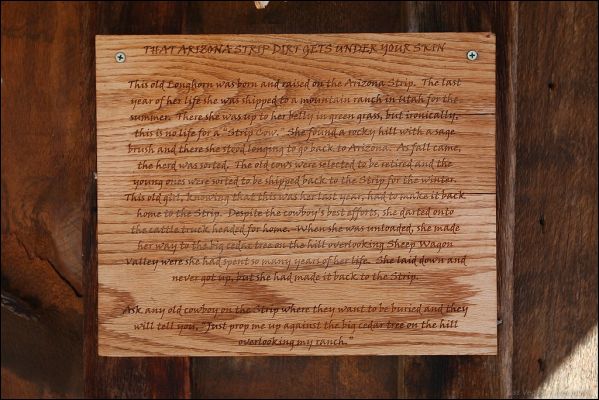 THAT ARIZONA STRIP DIRT GETS UNDER YOUR SKIN
This old Longhorn was born and raised on the Arizona Strip. The last
year of her life she was shipped to a mountain ranch in Utah for the
summer. There she was up to her belly in green grass, but ironically,
this is no life for a "Strip Cow." She found a rocky hill with a sage
brush and there she stood longing to go back to Arizona. As fall came,
the herd was sorted. The old cows were selected to be retired and the
young ones were sorted to be shipped back to the Strip for the winter.
This old girl, knowing that this was her last year, had to make it back
home to the Strip. Despite the cowboy's best efforts, she darted onto
the cattle truck headed for home. When she was unloaded, she made
her way to the big cedar tree on the hill overlooking Sheep Wagon
Valley were she had spent so many years of her life. She laid down and
never got up, but she had made it back to the Strip.
Ask any old cowboy on the Strip where they want to be buried and they
will tell you, "Just prop me up against the big cedar tree on the hill
overlooking my ranch."